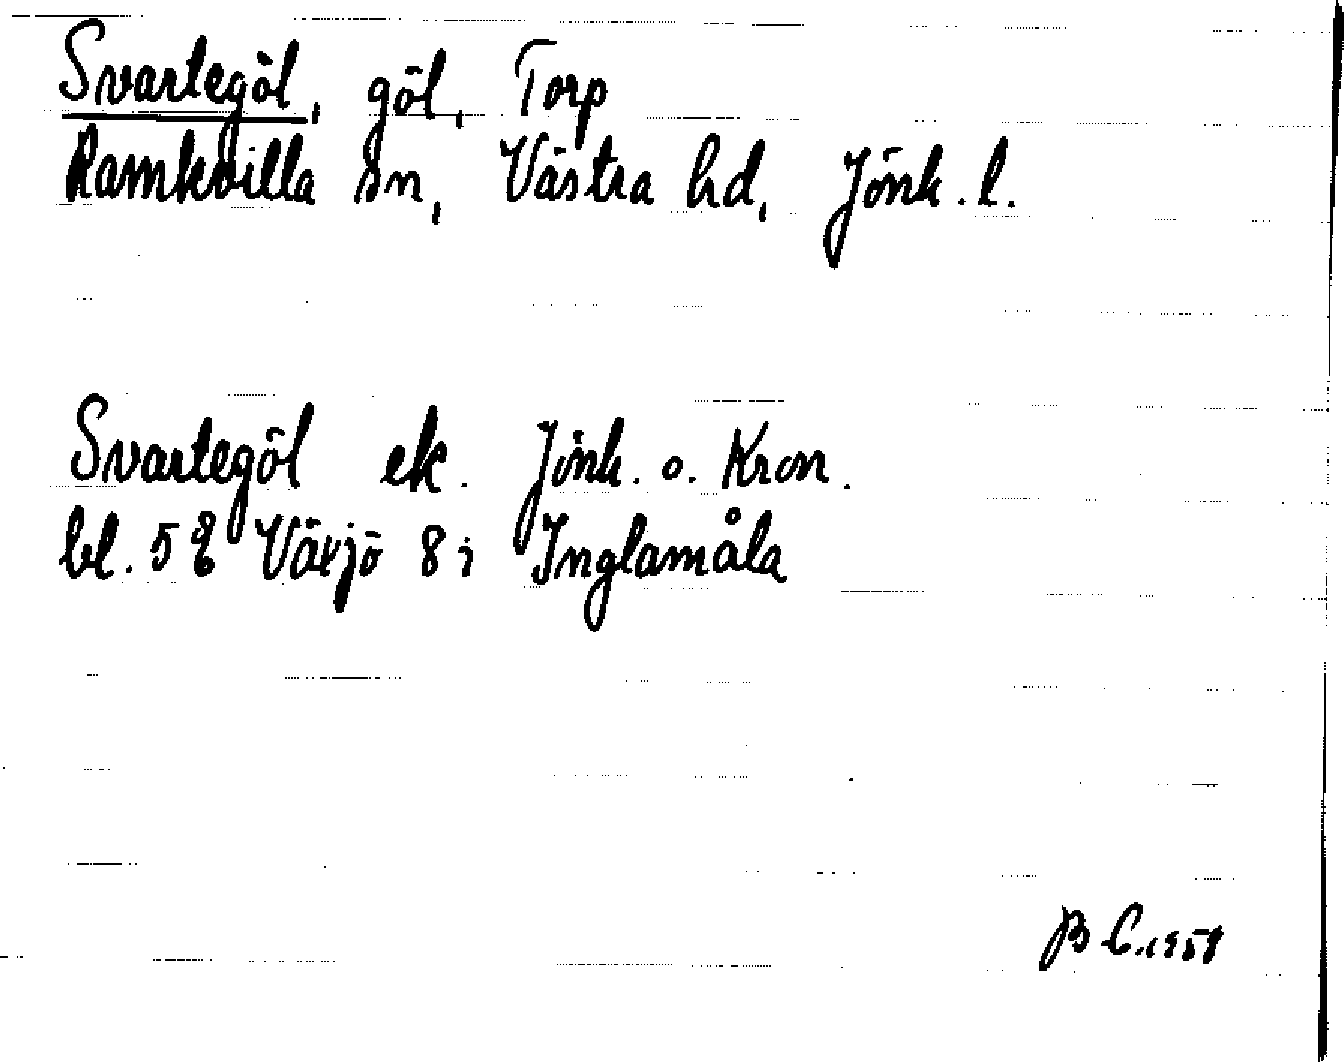 Svartegöl, göl, Torp
Ramkvilla sn, Västra hd, Jönk. l.
Svartegöl ek. Jönk. o. Kron.
bl. 5 E Växjö 8 i Inglamåla
B C. 1958